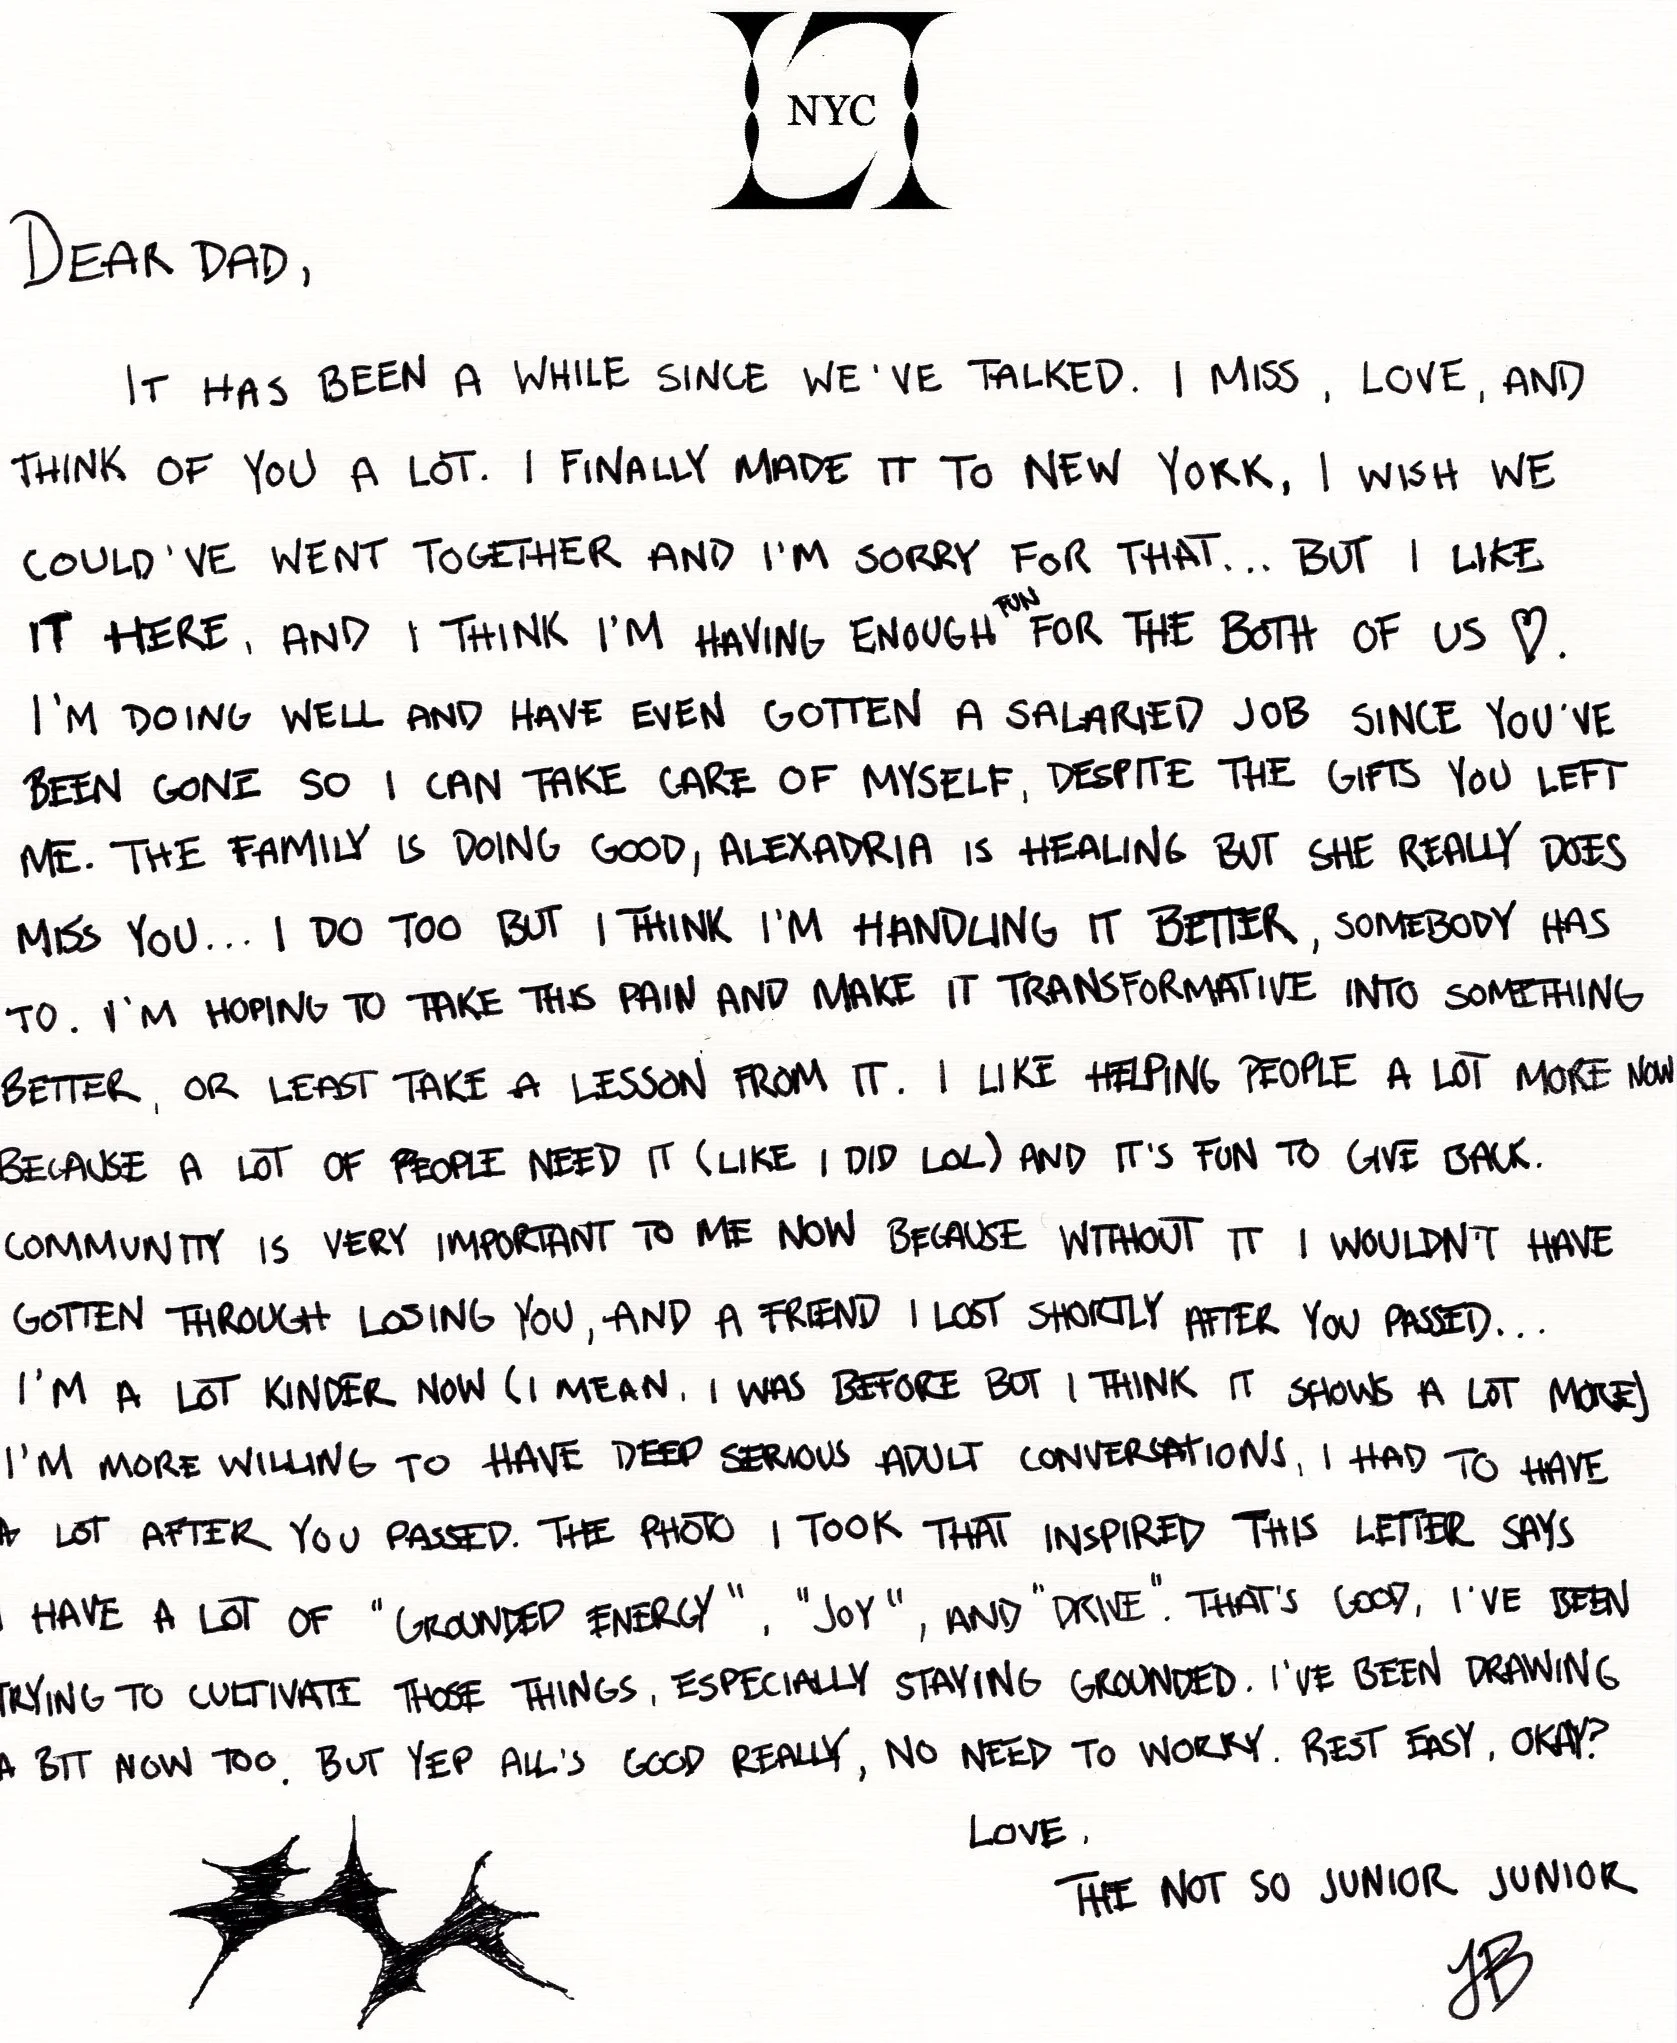 NYC
DEAR DAD,
IT HAS BEEN A WHILE SINCE WE'VE TALKED. I MISS, LOVE, AND
THINK OF YOU A LOT. I FINALLY MADE IT TO NEW YORK, I WISH WE
COULD'VE WENT TOGETHER AND I'M SORRY FOR THAT... BUT I LIKE
IT HERE, AND I THINK I'M HAVING ENOUGH FUN FOR THE BOTH OF US ♡.
I'M DOING WELL AND HAVE EVEN GOTTEN A SALARIED JOB SINCE YOU'VE
BEEN GONE SO I CAN TAKE CARE OF MYSELF, DESPITE THE GIFTS YOU LEFT
ME. THE FAMILY IS DOING GOOD, ALEXADRIA IS HEALING BUT SHE REALLY DOES
MISS YOU... I DO TOO BUT I THINK I'M HANDLING IT BETTER, SOMEBODY HAS
TO. I'M HOPING TO TAKE THIS PAIN AND MAKE IT TRANSFORMATIVE INTO SOMETHING
BETTER, OR LEAST TAKE A LESSON FROM IT. I LIKE HELPING PEOPLE A LOT MORE NOW
BECAUSE A LOT OF PEOPLE NEED IT (LIKE I DID LOL) AND IT'S FUN TO GIVE BACK.
COMMUNITY IS VERY IMPORTANT TO ME NOW BECAUSE WITHOUT IT I WOULDN'T HAVE
GOTTEN THROUGH LOSING YOU, AND A FRIEND I LOST SHORTLY AFTER YOU PASSED...
I'M A LOT KINDER NOW (I MEAN, I WAS BEFORE BUT I THINK IT SHOWS A LOT MORE)
I'M MORE WILLING TO HAVE DEEP SERIOUS ADULT CONVERSATIONS, I HAD TO HAVE
A LOT AFTER YOU PASSED. THE PHOTO I TOOK THAT INSPIRED THIS LETTER SAYS
I HAVE A LOT OF "GROUNDED ENERGY", "JOY", AND "DRIVE". THAT'S GOOD, I'VE BEEN
TRYING TO CULTIVATE THOSE THINGS, ESPECIALLY STAYING GROUNDED. I'VE BEEN DRAWING
A BIT NOW TOO. BUT YEP ALL'S GOOD REALLY, NO NEED TO WORRY. REST EASY, OKAY?
LOVE,
THE NOT SO JUNIOR JUNIOR
JB